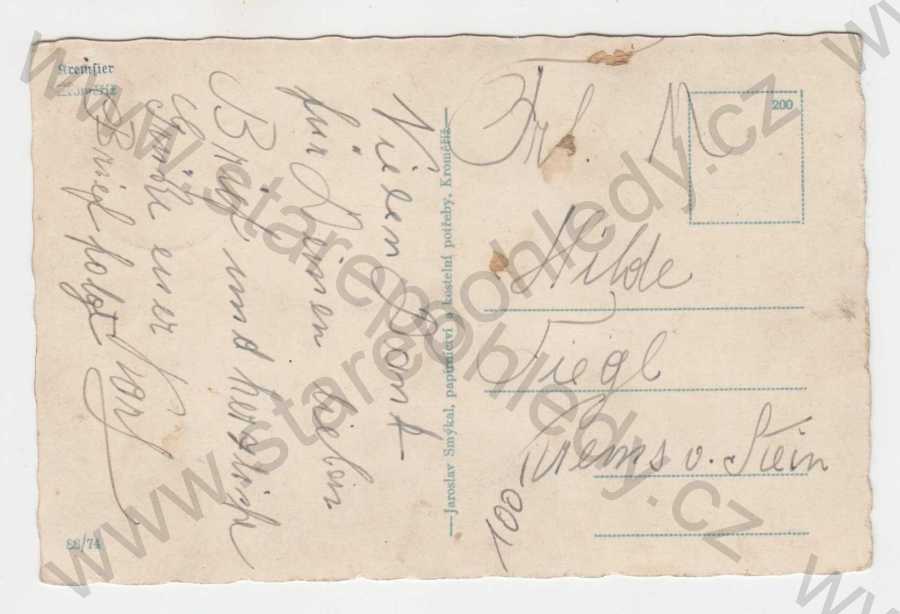 Kremsier
Kroměříž
Vielen Dank
für Deinen lieben
Brief und herzlich
Grüße euer Karl
Brief folgt
88/74
—Jaroslav Smýkal, papírnictví a kostelní potřeby, Kroměříž—
200
Frl.
Hilde
Fiegl
Krems v. Stein
100
www.starepohledy.cz